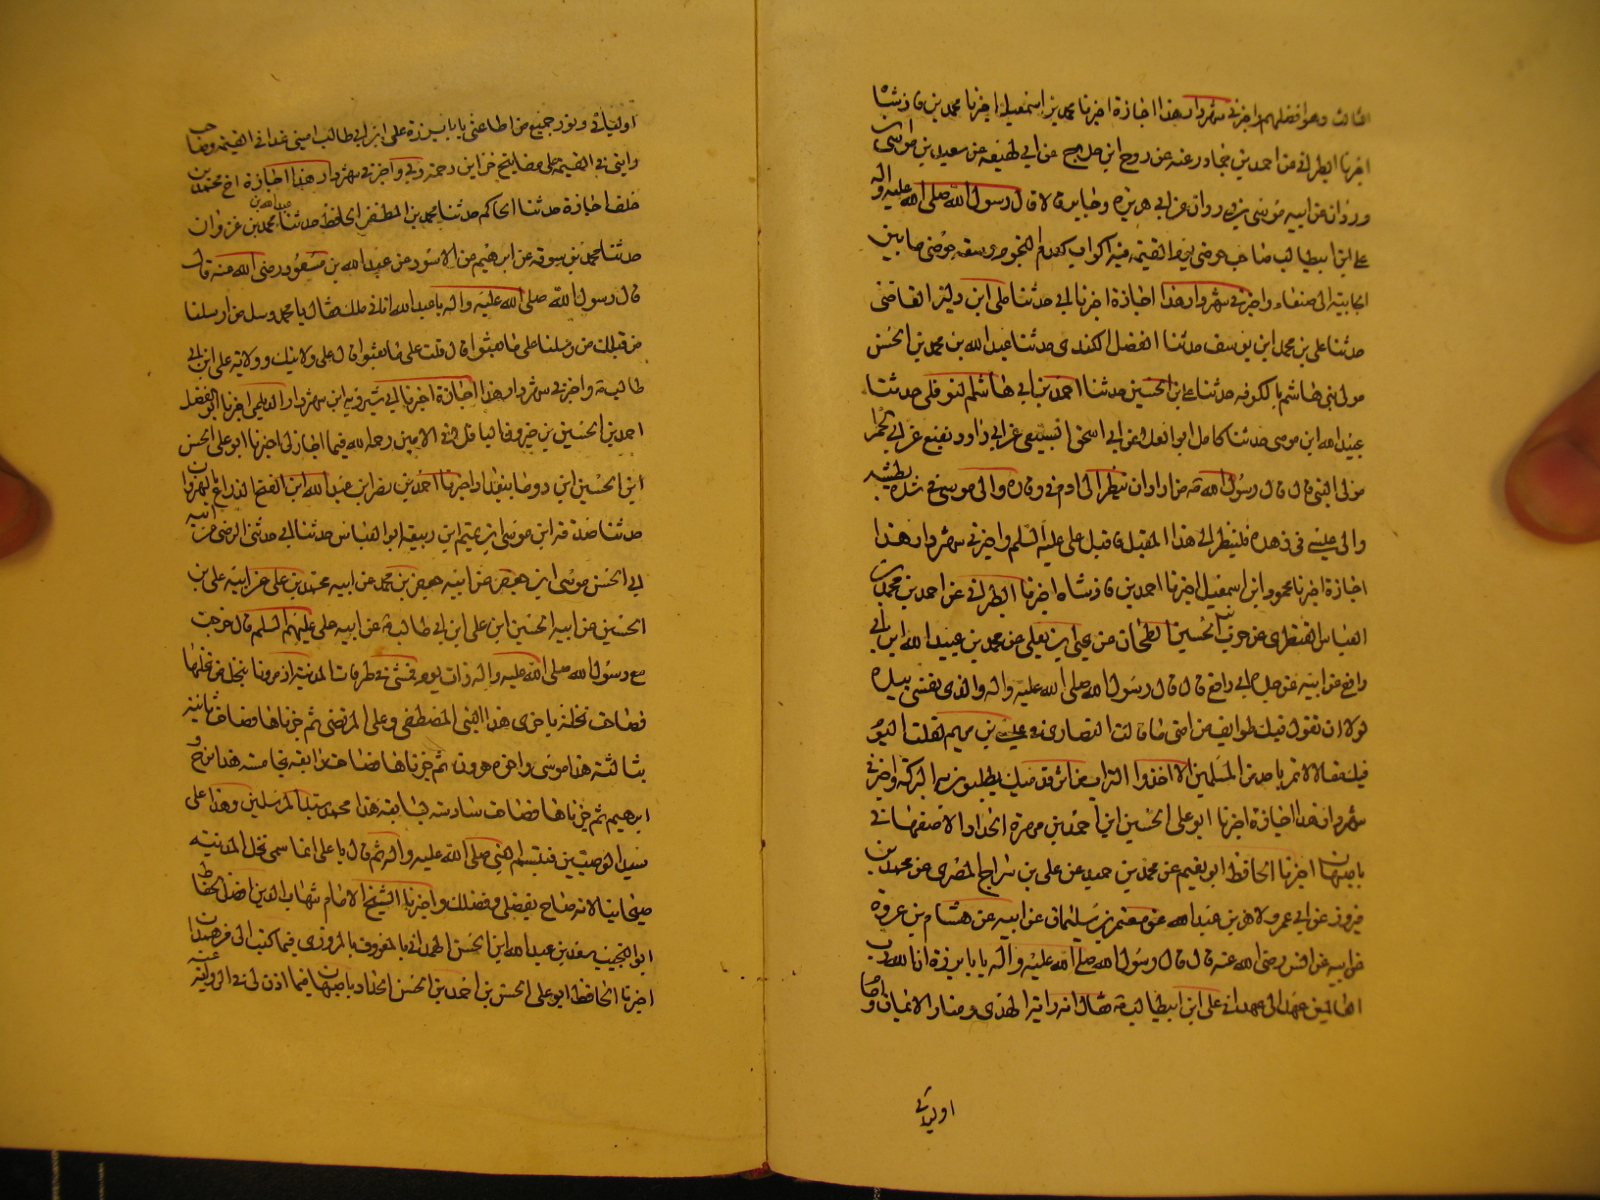 الثالث وهو افضلهم واخبرني شهردار هذا اجازة اخبرنا محمود بن اسمعيل اخبرنا محمد بن فاذشاه
اخبرنا الطبراني عن احمد بن محمد عن روح ابن عن ابي لهيعه عن سعيد بن موسى بن
وردان عن ابيه موسى بن وردان عن ابي هريرة وجابر قالا قال رسول الله صلى الله عليه واله
على ابن ابيطالب صاحب حوضي يوم القيمة فيه اكواب كعدد النجوم وسعة حوضي ما بين
الجابية الى صنعاء واخبرني شهردار هذا اجازة اخبرنا ابي حدثنا علي ابن القاضي
حدثنا علي بن محمد ابن يوسف حدثنا الفضل الكندي حدثنا عبد الله بن محمد بن الحسن
مولى بني هاشم بالكوفه حدثنا علي بن الحسين حدثنا احمد بن ابي هاشم النوفلي حدثنا
عبيد الله ابن موسى حدثنا كامل ابو العلا عن ابي اسحق السبيعي عن ابي داود نفيع عن ابي الحمرا
مولى النبي قال قال رسول الله من اراد ان ينظر الى ادم في وقاره والى موسى في شدة بطشه
والى عيسى في زهده فلينظر الى هذا المقبل فاقبل على عليه السلم واخبرني شهردار هذا
اجازة اخبرنا محمود ابن اسمعيل اخبرنا احمد بن فاذشاه اخبرنا الطبراني عن احمد بن محمد
العباس القنطرى عن حرب ابن الحسين الطحان عن يحيى ابن يعلى عن محمد بن عبيد الله ابن ابي
رافع عن ابيه عن جده ابي رافع قال قال رسول الله صلى الله عليه واله والذي نفسي بيده
لولا ان تقول فيك طوايف من امتى ما قالت النصارى في عيسى بن مريم لقلت اليوم
فيك مقالا لا تمر باحد من المسلمين الا اخذوا التراب من اثر قدميك يطلبون به البركة واخبرني
شهردار هذا اجازة اخبرنا ابو على الحسين ابن احمد بن مهرة الحداد الاصفهاني
باصبهان اخبرنا الحافظ ابو نعيم عن محمد بن حميد عن علي بن سراج المصري عن محمد بن
فيروز عن ابي عمرو لاهز بن عبد الله عن معتمر بن سليمان عن ابيه عن هشام بن عروه
عن ابيه عن انس رضى الله عنه قال قال رسول الله صلى الله عليه واله يا با برزة ان الله رب
العالمين عهد الى عهدا في على ابن ابيطالب فقال انه راية الهدى ومنار الايمان وامام
اوليائي
اوليائي ونور جميع من اطاعني يا با برزة على ابن ابي طالب اميني غدا في القيمة وصاحب
رايتي في القيمة على مفاتيح خزاين رحمة ربي واخبرني شهردار هذا اجازة اخ محمد بن
خلف اجازة حدثنا الحاكم حدثنا محمد بن المظفر الحافظ حدثنا عبد الله بن محمد بن غزوان
حدثنا محمد بن سوقه عن ابرهيم عن الاسود عن عبد الله بن مسعود رضى الله عنه قال
قال رسول الله صلى الله عليه واله يا عبد الله اتاني ملك فقال يا محمد وسل من ارسلنا
من قبلك من رسلنا على ما بعثوا قال قلت على ما بعثوا قال على ولايتك وولاية على ابن ابي
طالب واخبرني شهردار هذا اجازة اخبرنا ابي شيرويه ابن شهردار الديلمي اخبرنا ابو الفضل
احمد بن الحسين بن خيرون الباقلاني الامين رحمه الله فيما اجاز لي اخبرنا ابو على الحسن
ابن الحسين ابن دوما ببغداد اخبرنا احمد بن نصر ابن عبد الله ابن الفتح الذراع النهروان
حدثنا صدقة ابن موسى ابن تميم ابن ربيعه ابو العباس حدثنا ابي حدثني الرضى عن ابيه
ابي الحسن موسى ابن جعفر عن ابيه جعفر بن محمد عن ابيه محمد بن على عن ابيه على بن
الحسين عن ابيه الحسين ابن على ابن ابي طالب عن ابيه على عليهم السلم قال خرجت
مع رسول الله صلى الله عليه واله ذات يوم نمشي في طرقات المدينة اذ مررنا بنخل من نخلها
فصاحت نخلة باخرى هذا النبي المصطفى وعلى المرتضى ثم جزناها فصاحت ثانية
بثالثة هذا موسى واخوه هرون ثم جزناها فصاحت رابعة بخامسة هذا نوح و
ابرهيم ثم جزناها فصاحت سادسة بسابعة هذا محمد سيد المرسلين وهذا على
سيد الوصيين فتبسم النبي صلى الله عليه واله ثم قال يا على انما سمى نخل المدينة
صيحانيا لانه صاح بفضلي وفضلك واخبرنا الشيخ الامام شهاب الدين افضل الحفاظ
ابو النجيب سعد بن عبد الله ابن الحسن الهمداني المعروف بالمروزى فيما كتب الى من همدان
اخبرنا الحافظ ابو على الحسن بن احمد بن الحسن الحداد باصبهان فيما اذن لي في الرواية عنه